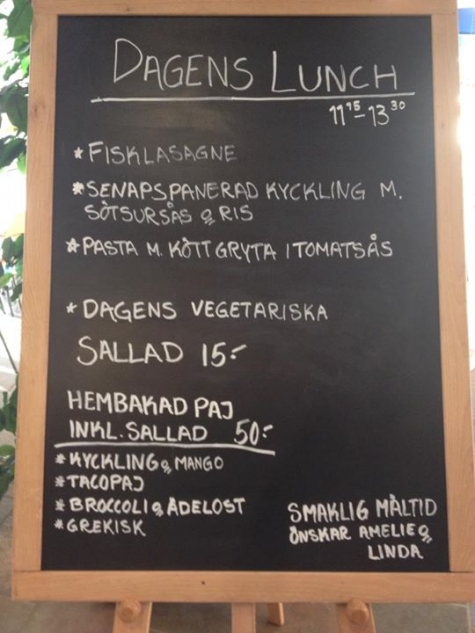 DAGENS LUNCH
11 15 - 13 30
* FISKLASAGNE
* SENAPSPANERAD KYCKLING M.
SÖTSURSÅS & RIS
* PASTA M. KÖTTGRYTA I TOMATSÅS
* DAGENS VEGETARISKA
SALLAD 15:-
HEMBAKAD PAJ
INKL. SALLAD 50:-
* KYCKLING & MANGO
* TACOPAJ
* BROCCOLI & ÄDELOST
* GREKISK
SMAKLIG MÅLTID
ÖNSKAR AMELIE &
LINDA